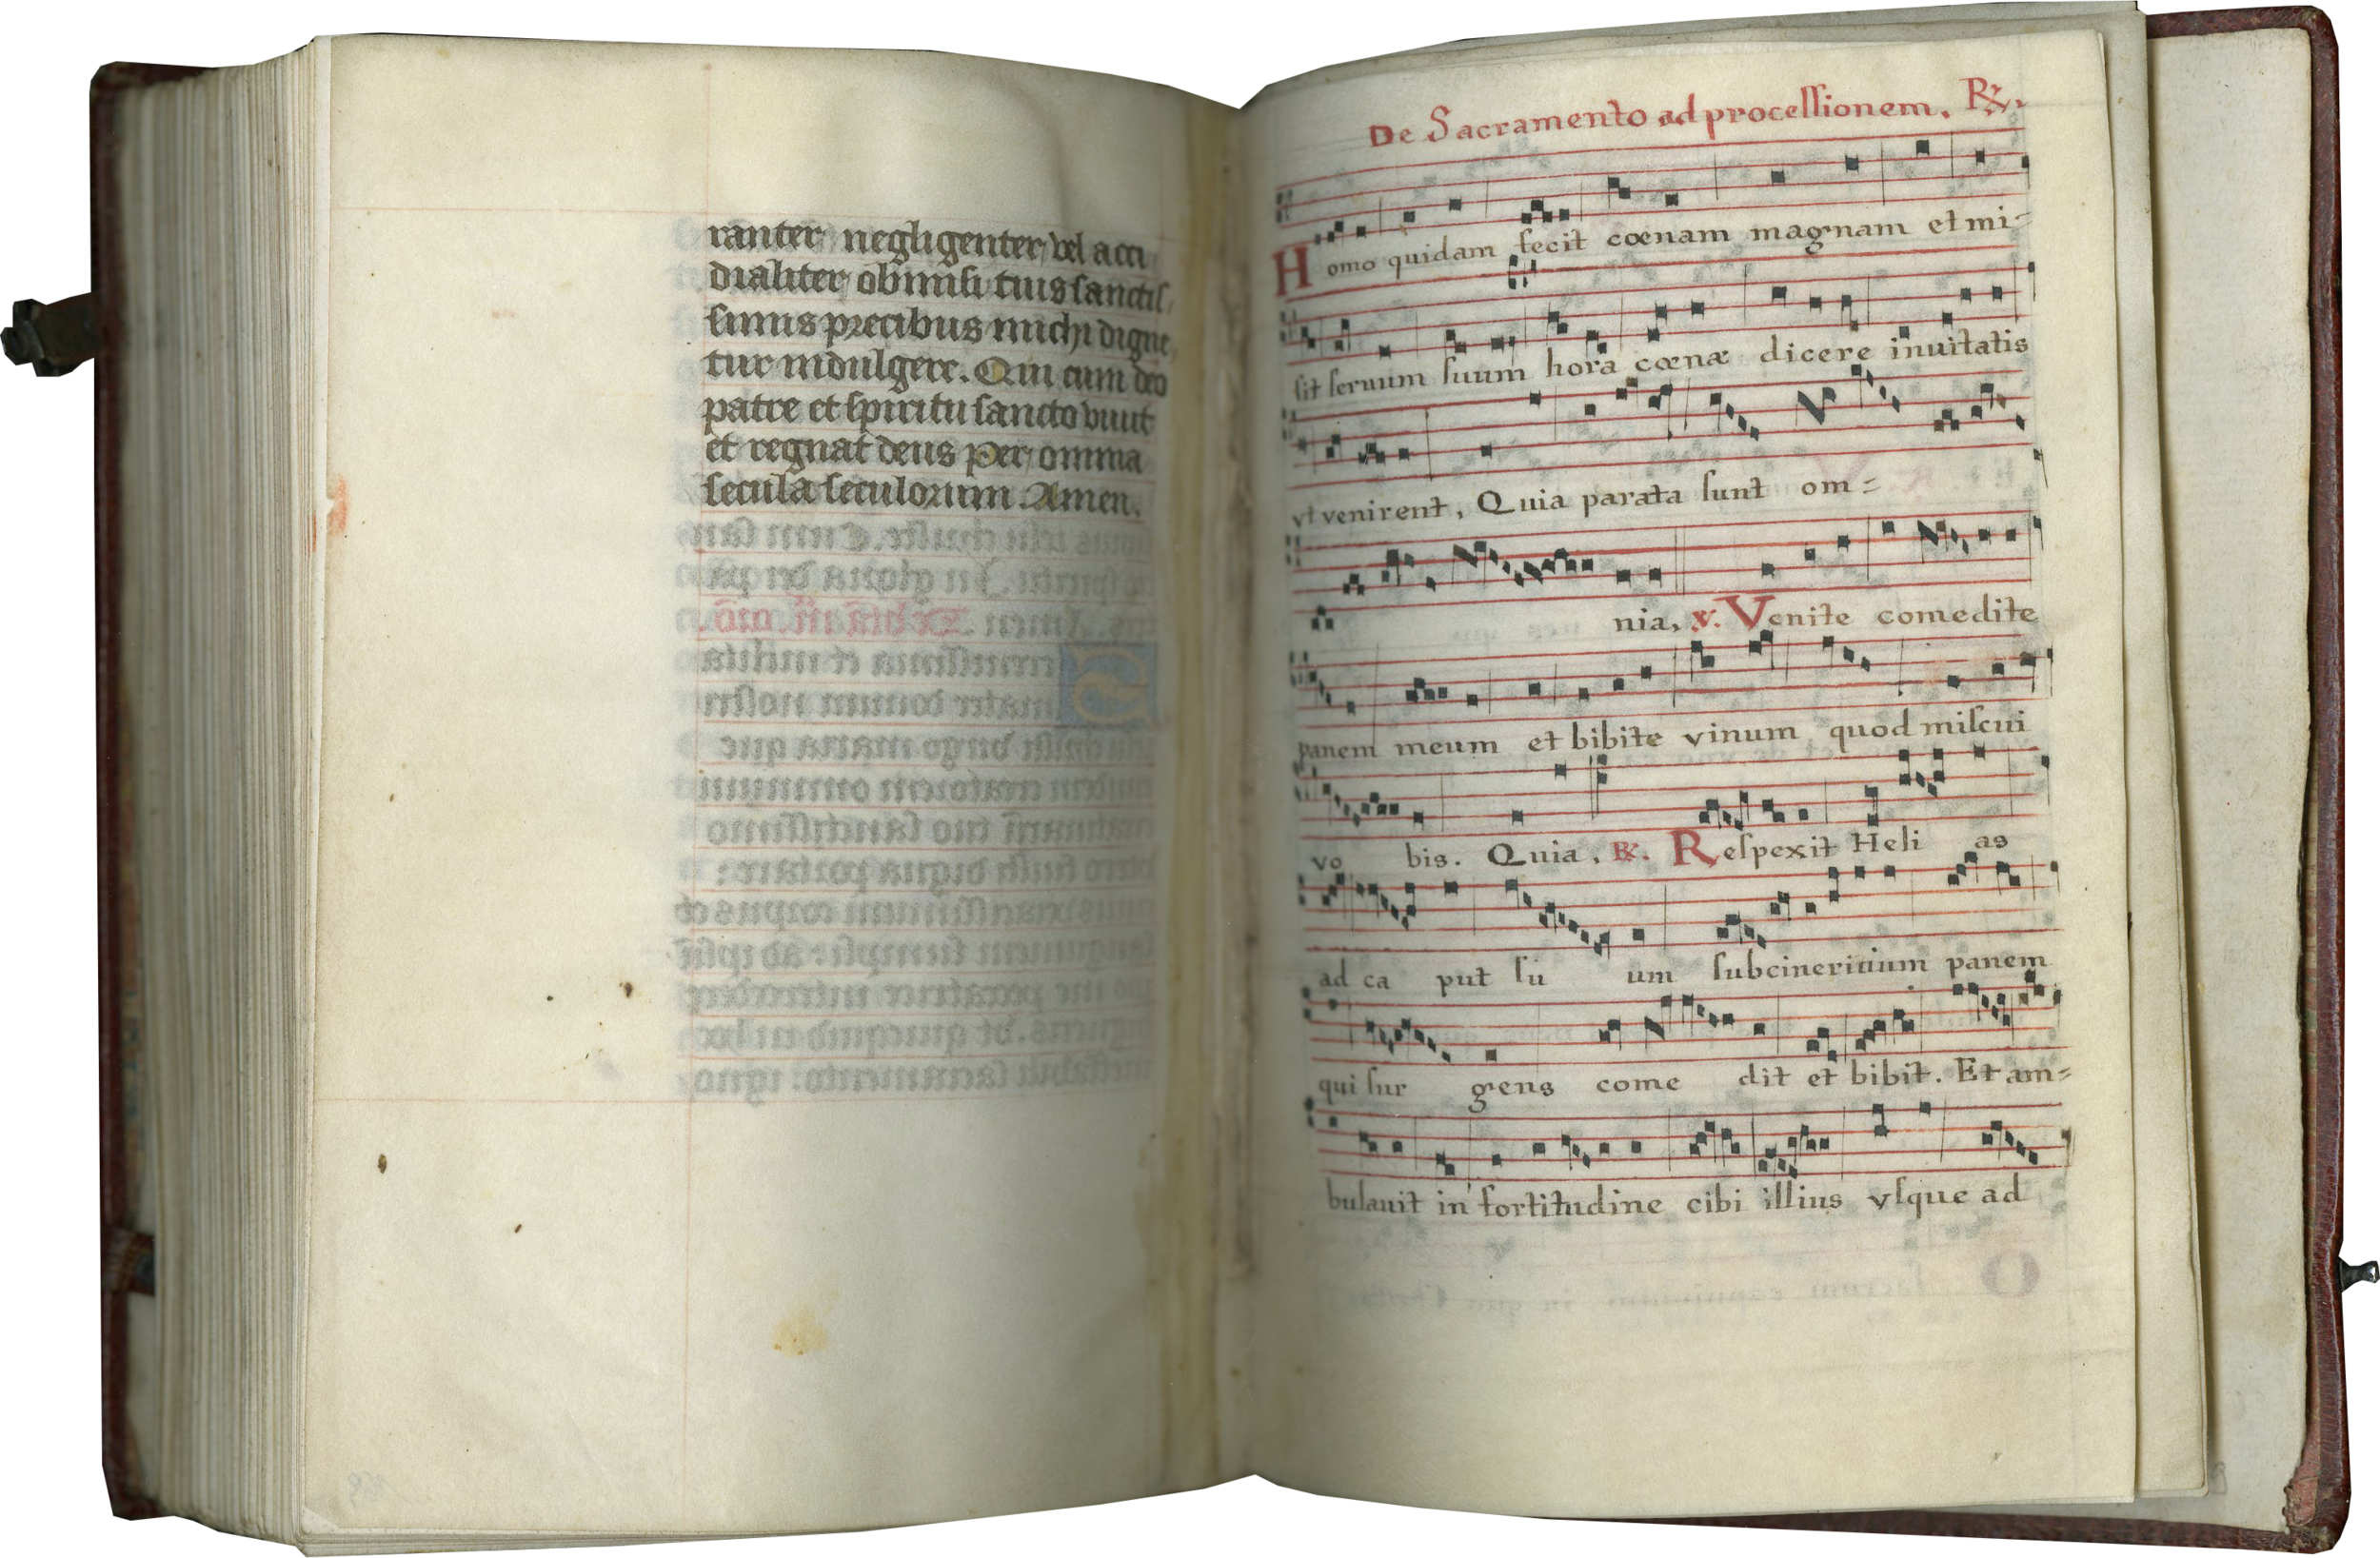 ranter negligenter vel acci
dialiter obmisi tuis sanctis,
simis precibus michi digne,
tur indulgere. Qui cum deo
patre et spiritu sancto viuit
et regnat deus per omnia
secula seculorum. Amen.
De Sacramento ad processionem. ℟.
Homo quidam fecit cœnam magnam et mi-
ſit ſeruum ſuum hora cœnæ dicere inuitatis
vt venirent, Quia parata ſunt om=
nia, ℣. Venite comedite
panem meum et bibite vinum quod miſcui
vo bis. Quia. ℟. Reſpexit Heli as
ad ca put ſu um ſubcineritium panem
qui ſur gens come dit et bibit. Et am=
bulauit in fortitudine cibi illius vſque ad